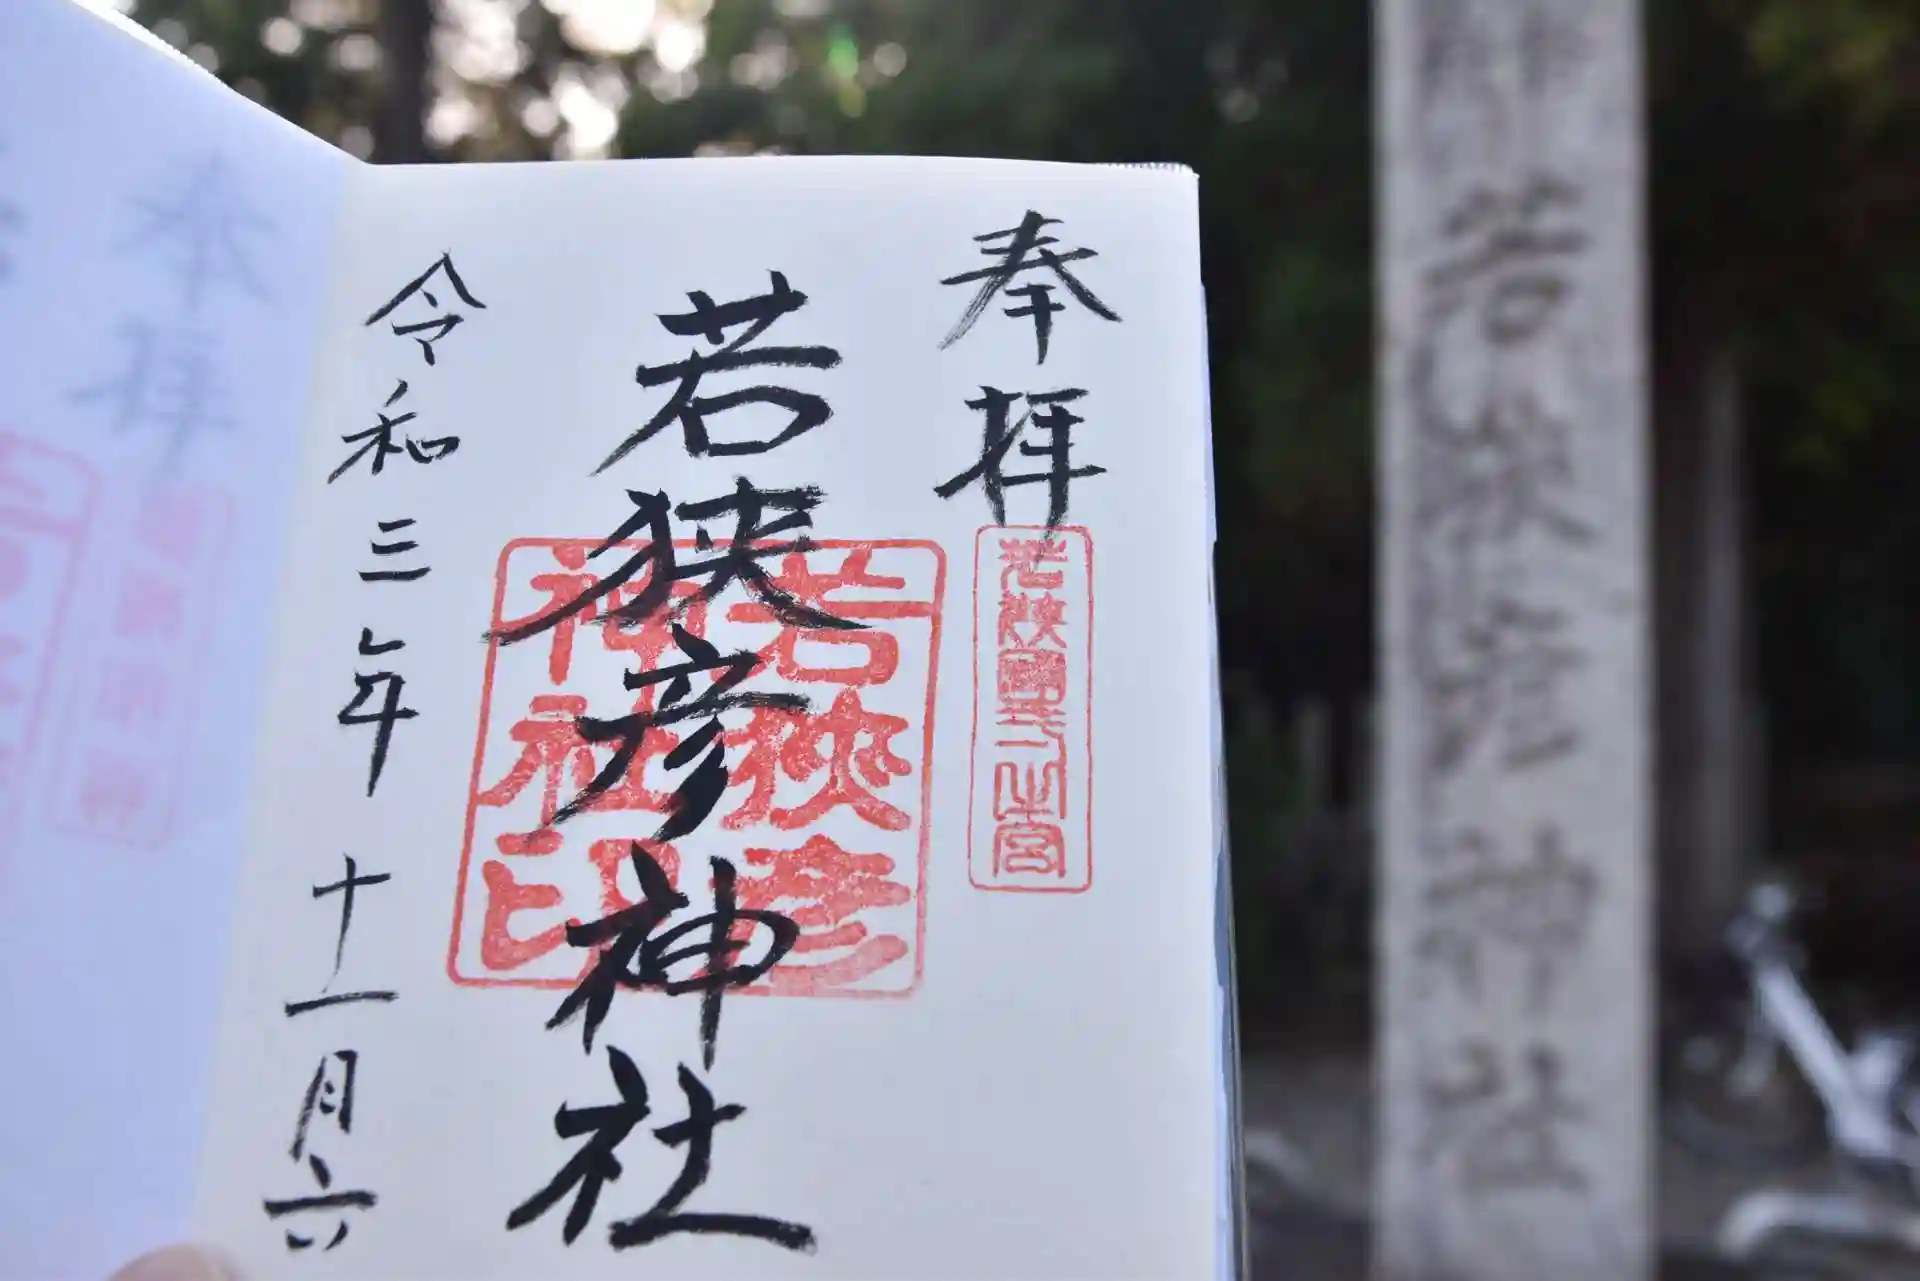 奉拝
若狭國一之宮
若狭彦神社
若狭彦
神社印
令和三年十一月六
若狭彦神社
奉拝